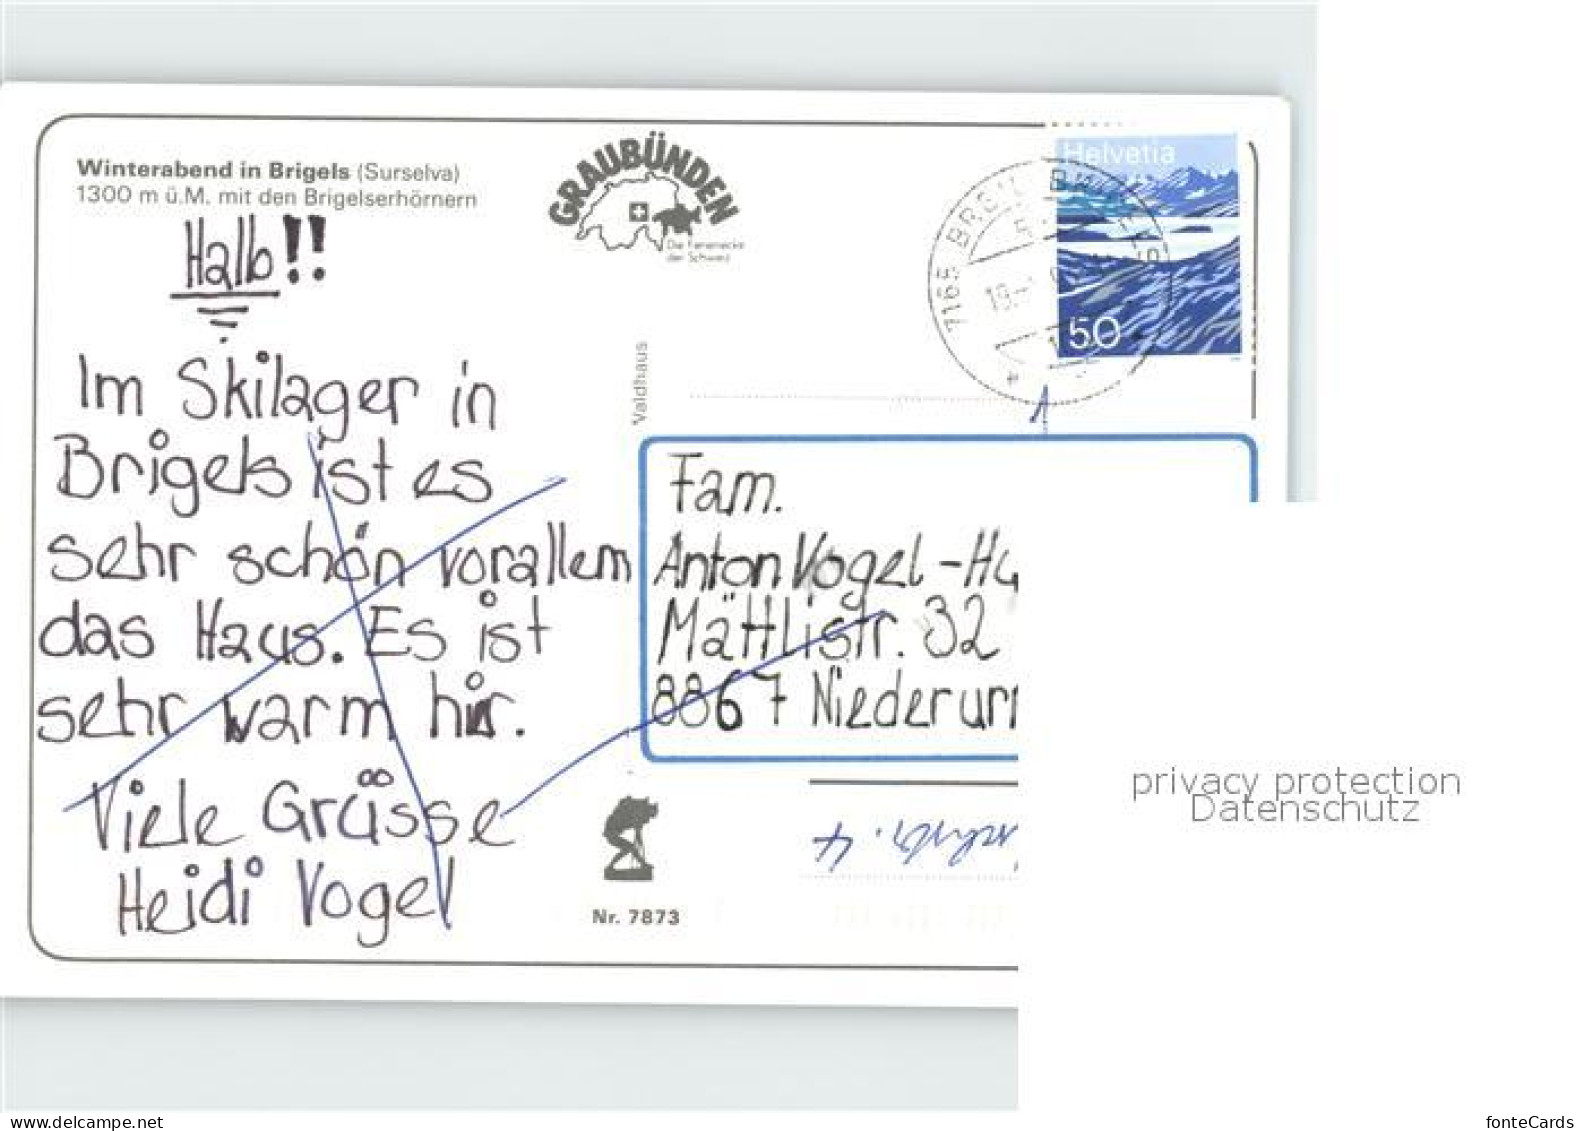 Winterabend in Brigels (Surselva)
1300 m ü.M. mit den Brigelserhörnern
GRAUBÜNDEN
Die Ferienecke
der Schweiz
Helvetia
50
7165 BREIL BRIGELS
Hallo!!
Im Skilager in
Brigels ist es
sehr schön vorallem
das Haus. Es ist
sehr warm hir.
Viele Grüsse
Heidi Vogel
Valdhaus
1
Fam.
Anton Vogel-Hu
Mättlistr. 32
8867 Niederurn
Nr. 7873
privacy protection
Datenschutz
www.delcampe.net
fonteCards